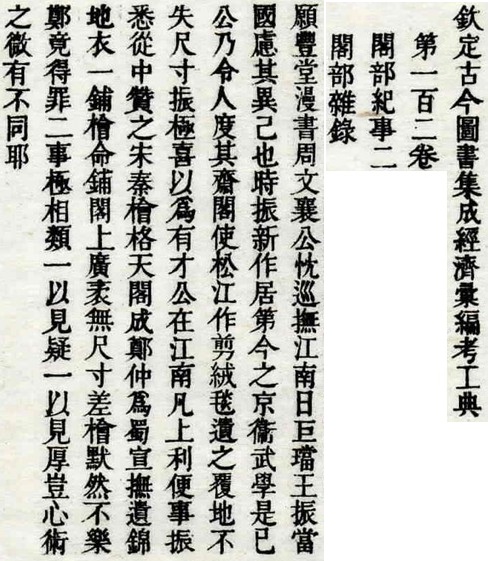 欽定古今圖書集成經濟彙編考工典
第一百二卷
閣部紀事二
閣部雜錄
願豐堂漫書周文襄公忱巡撫江南日巨璫王振當
國慮其異己也時振新作居第今之京衞武學是已
公乃令人度其齋閣使松江作剪絨毯遺之覆地不
失尺寸振極喜以爲有才公在江南凡上利便事振
悉從中贊之宋秦檜格天閣成鄭仲爲蜀宣撫遺錦
地衣一鋪檜命鋪閣上廣袤無尺寸差檜默然不樂
鄭竟得罪二事極相類一以見疑一以見厚豈心術
之微有不同耶